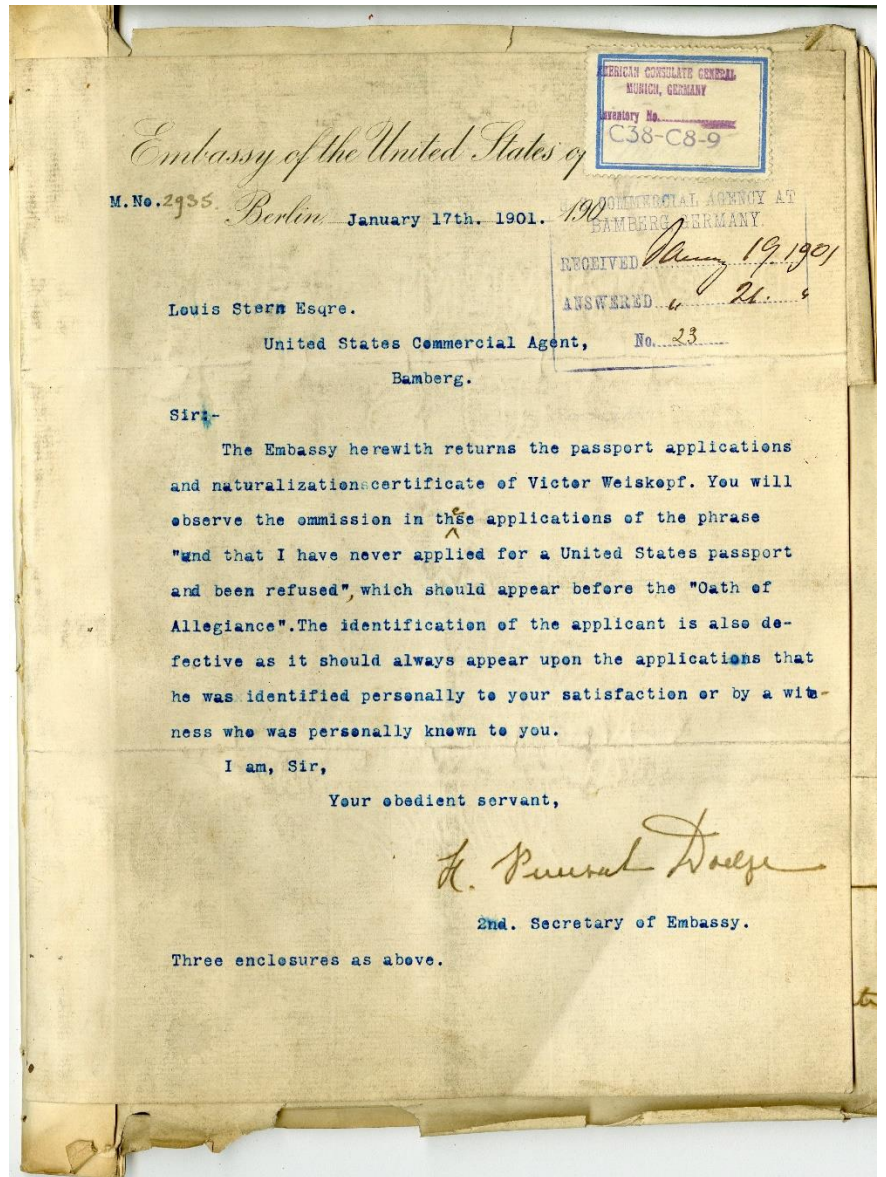 AMERICAN CONSULATE GENERAL
MUNICH, GERMANY
Inventory No.
C38-C8-9
Embassy of the United States of
M.No. 2935.
Berlin, January 17th. 1901. 190
COMMERCIAL AGENCY AT
BAMBERG GERMANY.
RECEIVED January 19, 1901
ANSWERED " 21. "
No. 23
Louis Stern Esqre.
United States Commercial Agent,
Bamberg.
Sir:-
The Embassy herewith returns the passport applications
and naturalization certificate of Victor Weiskopf. You will
observe the ommission in these applications of the phrase
"and that I have never applied for a United States passport
and been refused", which should appear before the "Oath of
Allegiance".The identification of the applicant is also de-
fective as it should always appear upon the applications that
he was identified personally to your satisfaction or by a wit-
ness who was personally known to you.
I am, Sir,
Your obedient servant,
H. Percival Dodge
2nd. Secretary of Embassy.
Three enclosures as above.